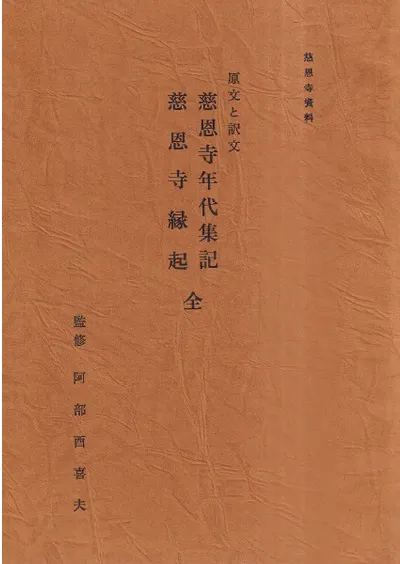 慈恩寺資料
原文と訳文
慈恩寺年代集記
慈恩寺縁起
全
監修 阿部酉喜夫